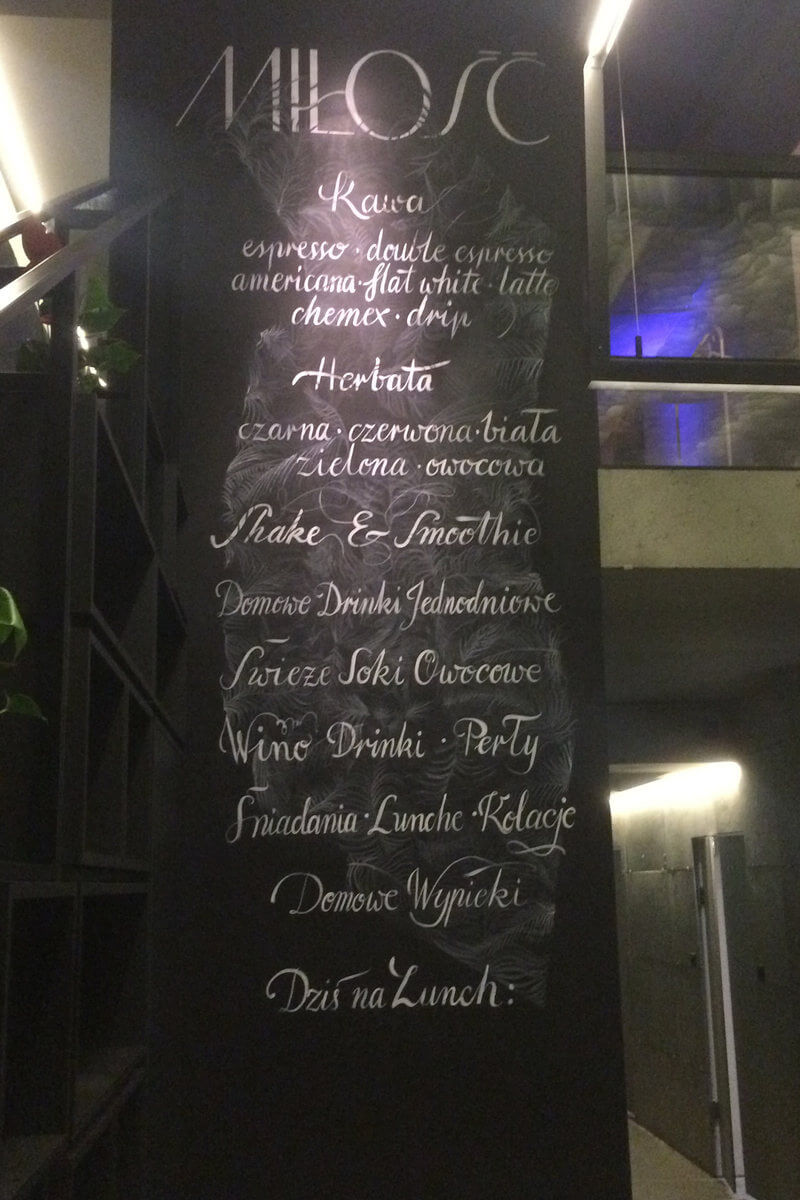 MIŁOŚĆ
Kawa
espresso · double espresso
americana · flat white · latte
chemex · drip
Herbata
czarna · czerwona · biała
zielona · owocowa
Shake & Smoothie
Domowe Drinki Jednodniowe
Świeże Soki Owocowe
Wino Drinki · Perły
Śniadania · Lunche · Kolacje
Domowe Wypieki
Dziś na Lunch: